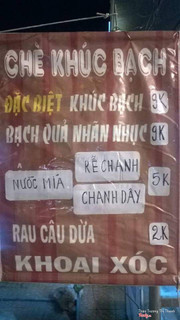 CHÈ KHÚC BẠCH
ĐẶC BIỆT KHÚC BẠCH 9K
BẠCH QUẢ NHÂN NHỤC 9K
RÊ CHANH
NƯỚC MÍA 5K
CHANH DÂY
RAU CÂU DỪA 2K
KHOAI XÓC